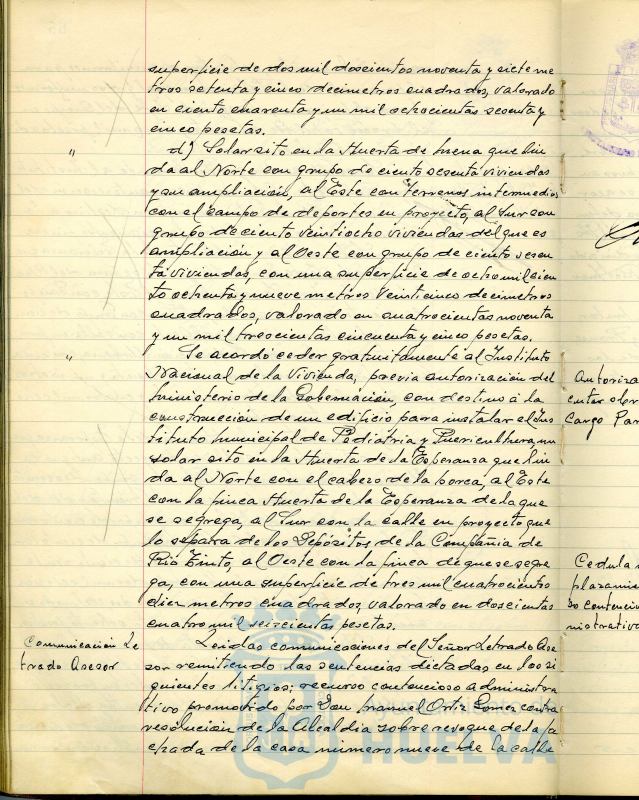 superficie de dos mil doscientos noventa y siete me
tros setenta y cinco decimetros cuadrados, valorado
en ciento cuarenta y un mil ochocientas sesenta y
cinco pesetas.
"
d) Solar sito en la Huerta de Mena que lin
da al Norte con grupo de ciento sesenta viviendas
y su ampliación, al Este con terrenos intermedios
con el campo de deportes en proyecto, al Sur con
grupo de ciento veintiocho viviendas del que es
ampliación y al Oeste con grupo de ciento sesen
ta viviendas, con una superficie de ocho mil cien
to ochenta y nueve metros veinticinco decimetros
cuadrados, valorado en cuatrocientas noventa
y un mil trescientas cincuenta y cinco pesetas.
"
Se acordó ceder gratuitamente al Instituto
Nacional de la Vivienda, previa autorización del
Ministerio de la Gobernación, con destino a la
construcción de un edificio para instalar el Ins
tituto Municipal de Pediatria y Puericultura, un
solar sito en la Huerta de la Esperanza que lin
da al Norte con el cabezo de la horca, al Este
con la finca Huerta de la Esperanza de la que
se segrega, al Sur con la calle en proyecto que
lo separa de los Depósitos de la Compañia de
Rio Tinto, al Oeste con la finca de que se segre
ga, con una superficie de tres mil cuatrocientos
diez metros cuadrados, valorado en doscientas
cuatro mil seiscientas pesetas.
Comunicación Le
trado Asesor
Leidas comunicaciones del Señor Letrado Ase
sor remitiendo las sentencias dictadas en los si
guientes litigios: recurso contencioso administra
tivo promovido por Don Manuel Ortiz Gomez contra
resolución de la Alcaldia sobre revoque de la fa
chada de la casa numero nueve de la calle
Autoriza
cargo Par
Cedula
plazamie
so contencio
nistrativo
HUELVA